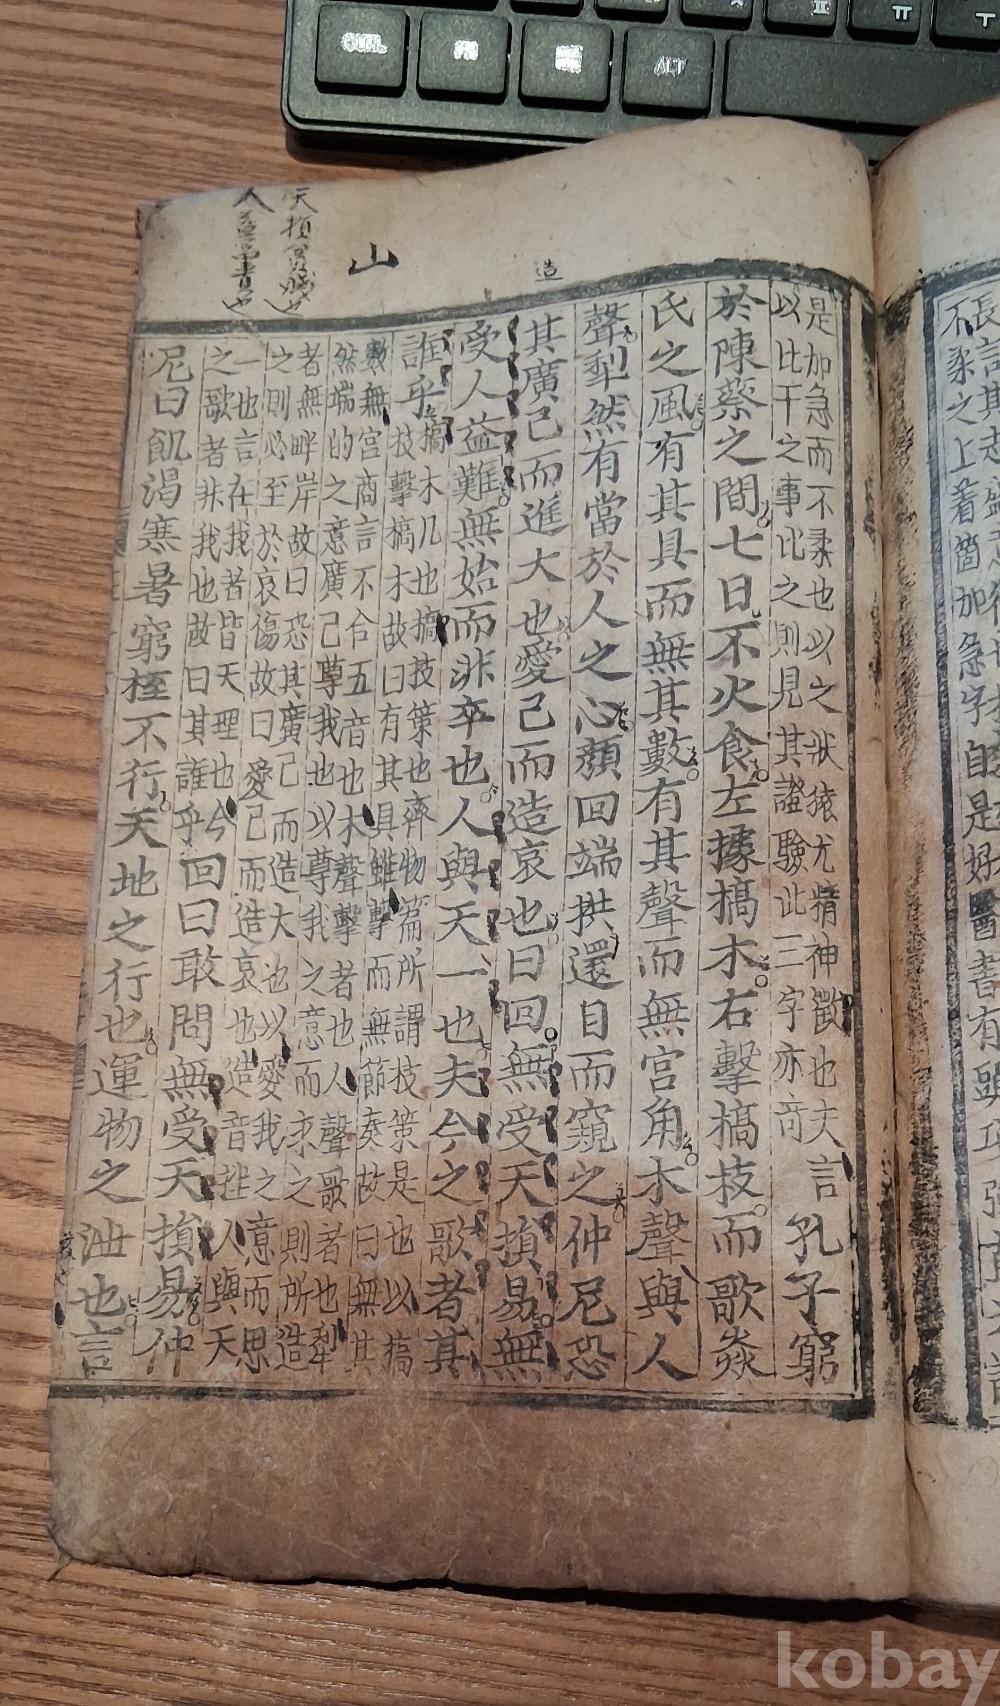 不柔之上着箇加急字自是好醫書有頭項強
是加急而不柔也以之狀猿尤精神徵也夫言
以比干之事比之則見其證驗此三字亦奇
孔子窮
於陳蔡之間七日不火食左據槁木右擊槁枝而歌焱
氏之風有其具而無其數有其聲而無宮角木聲與人
聲犁然有當於人之心顏回端拱還目而窺之仲尼恐
造
其廣己而進大也愛己而造哀也曰回無受天損易無
受人益難無始而非卒也人與天一也夫今之歌者其
山
誰乎
槁木几也槁枝策也齊物篇所謂枝策是也以槁
枝擊槁木故曰有其具雖擊而無節奏故曰無其
數無宮商言不合五音也木聲擊者也人聲歌者也犁
然端的之意廣己尊我也以尊我之意而求之則所造
者無畔岸故曰恐其廣己而造大也以愛我之意而思
之則必至於哀傷故曰愛己而造哀也造音人與天
一也言在我者皆天理也今
之歌者非我也故曰其誰乎
回曰敢問無受天損易仲
尼曰飢渴寒暑窮桎不行天地之行也運物之泄也言
天損
人
ALT
kobay